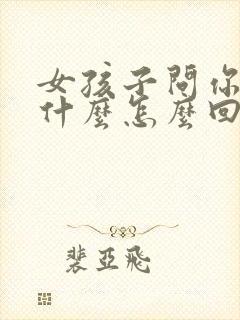 女孩子問你
什麼怎麼回
裴亞飛